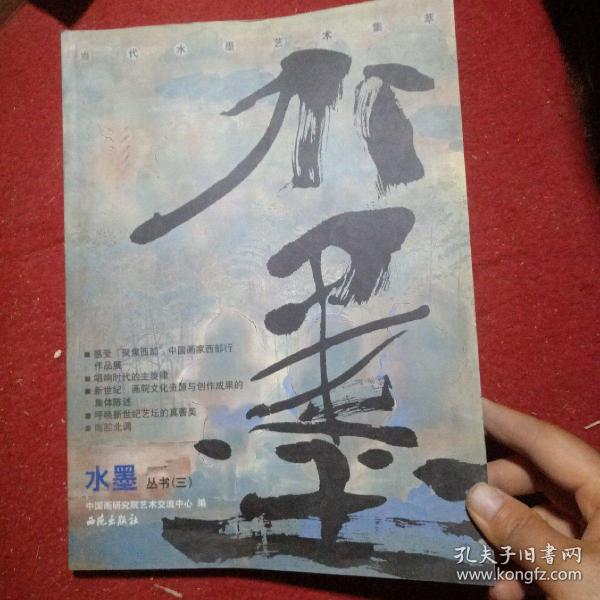 当代水墨艺术集萃
水墨
■感受“聚焦西部”中国画家西部行
作品展
■唱响时代的主旋律
■新世纪：画院文化贡献与创作成果的
集体陈述
■呼唤新世纪艺坛的真善美
■南腔北调
水墨 丛书(三)
中国画研究院艺术交流中心 编
西苑出版社
孔夫子旧书网
www.kongfz.com